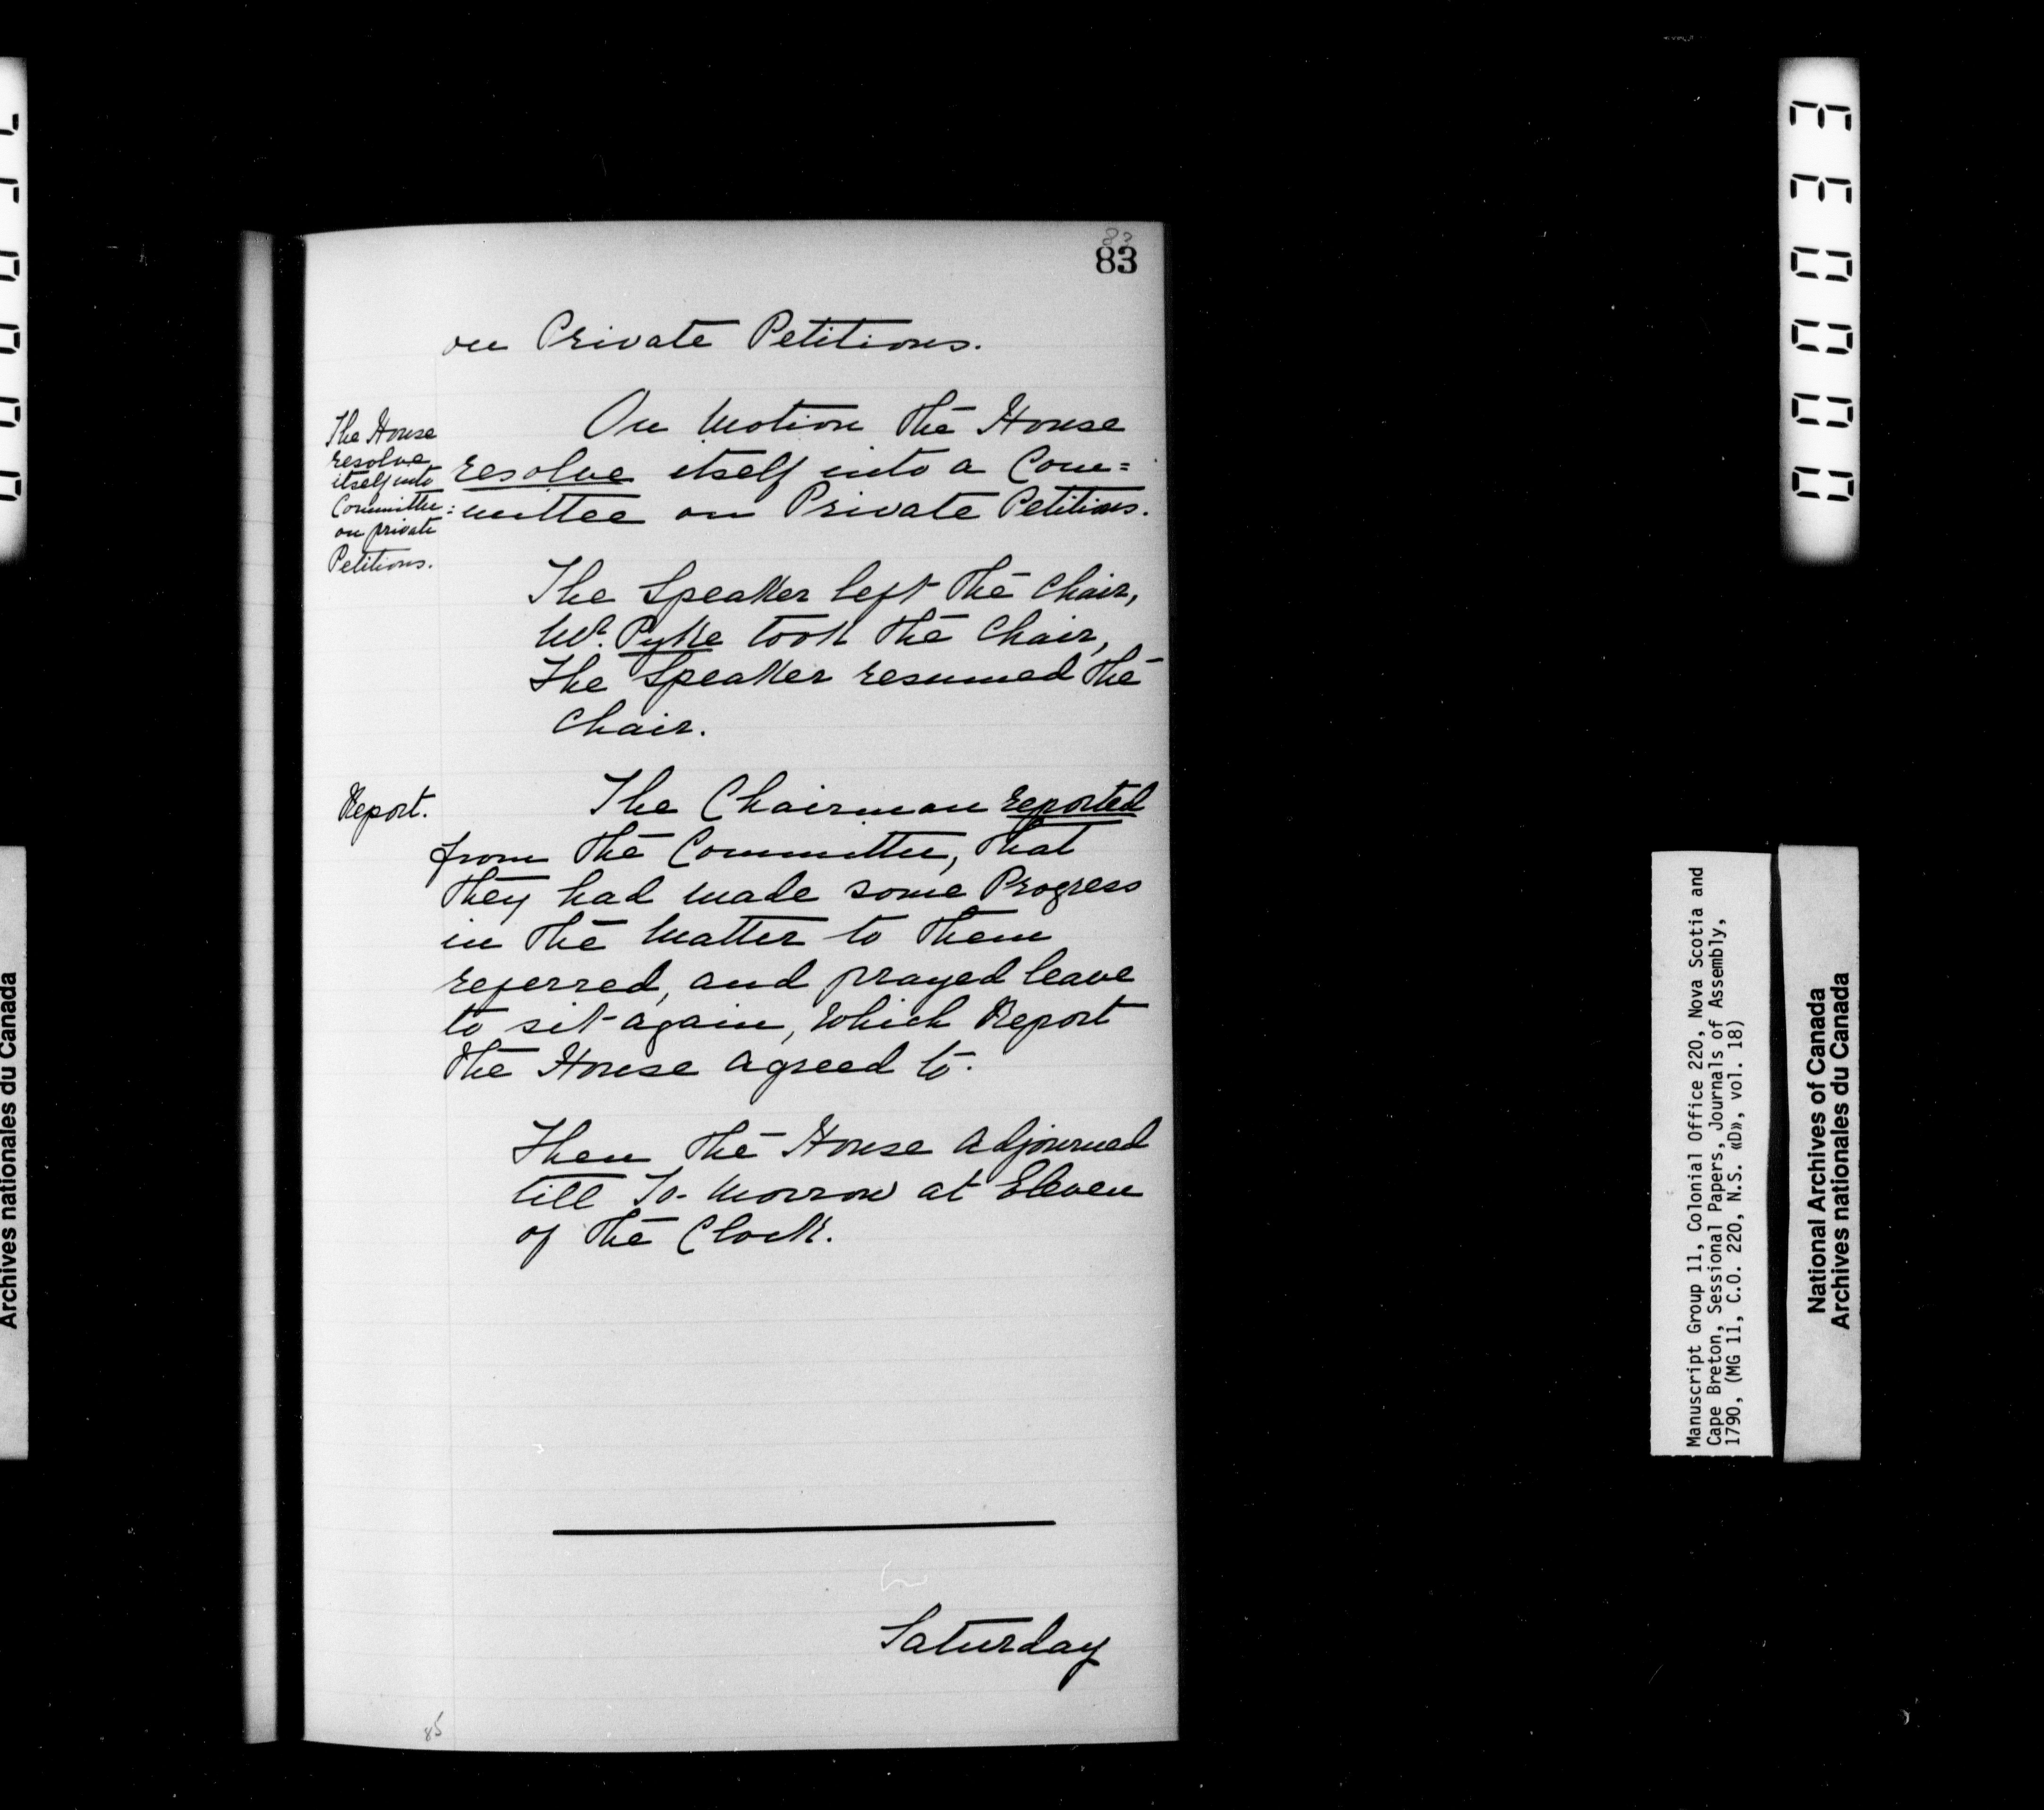 83
83
on Private Petitions.
The House
resolve
itself into
Committee
on private
Petitions.
On Motion the House
resolve itself into a Com=
=mittee on Private Petitions.
The Speaker left the Chair,
Mr. Pyke took the Chair,
The Speaker resumed the
Chair.
Report.
The Chairman reported
from the Committee, that
they had made some Progress
in the Matter to them
referred, and prayed leave
to sit again, which Report
the House agreed to.
Then the House Adjourned
till To-Morrow at Eleven
of the Clock.
Saturday
85
000033
Manuscript Group 11, Colonial Office 220, Nova Scotia and
Cape Breton, Sessional Papers, Journals of Assembly,
1790, (MG 11, C.O. 220, N.S. «D», vol. 18)
National Archives of Canada
Archives nationales du Canada
Archives nationales du Canada